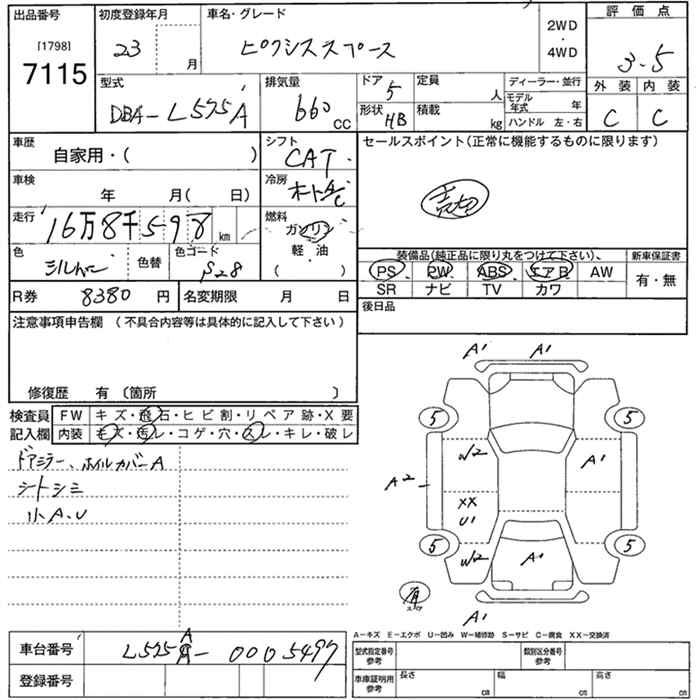 出品番号 初度登録年月 車名・グレード 2WD・4WD 評価点
[1798]
7115
23 月
ピクシススペース
3.5
型式 排気量 ドア 定員 ディーラー・並行 外装 内装
DBA-L575A 660 CC 5 人 モデル年式 年 C C
形状 HB 積載 kg ハンドル 左・右
車歴 シフト セールスポイント(正常に機能するものに限ります)
自家用・( ) CAT
車検 冷房
年 月( 日)
売切
走行 燃料
16万8千598 km ガソリン
軽・油
( )
色 色替 色コード S28
装備品(純正品に限り丸をつけて下さい)、 新車保証書
PS PW ABS エアB AW 有・無
SR ナビ TV カワ
R券 8380 円 名変期限 月 日 後日品
注意事項申告欄 (不具合内容等は具体的に記入して下さい)
修復歴 有〔箇所 〕
検査員 FW キズ・飛石・ヒビ割・リペア跡・X要
記入欄 内装 キズ・汚レ・コゲ・穴・スレ・キレ・破レ
ドアミラー、ホイルカバーA
シートシミ
小A.U
A1 A1
5 5
W2 A1
A2
XX
U1
5 5
W2 A1
有
A1
A-キズ E-エクボ U-凹み W-補修跡 S-サビ C-腐食 XX-交換済
車台番号 L575A-0005497
登録番号
型式指定番号 参考 類別区分番号 参考
車庫証明用 参考 長さ cm 幅 cm 高さ cm